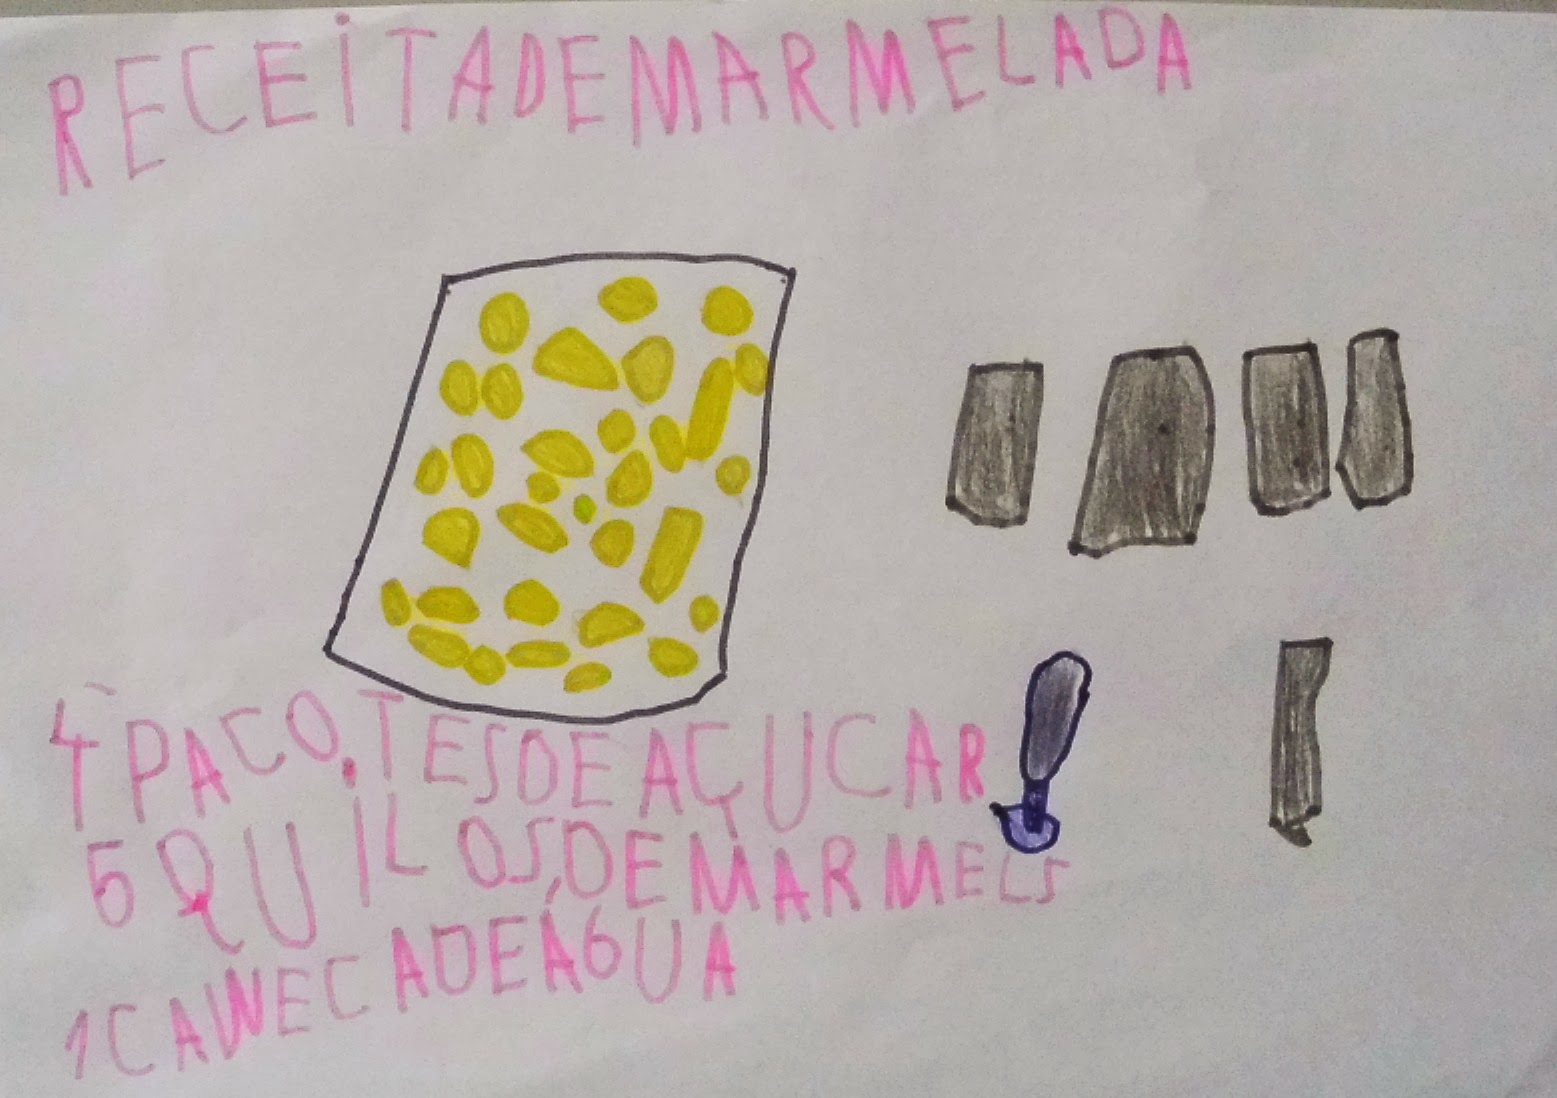 RECEITADEMARMELADA
4 PACOTESDEAÇUCAR
5QUILOSDEMARMELS
1CANECADEÁGUA